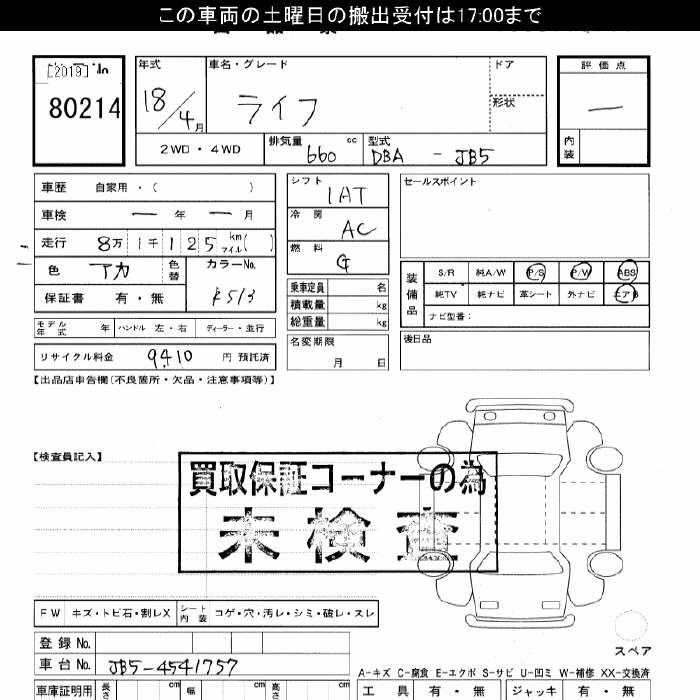 この車両の土曜日の搬出受付は17:00まで
[2019] No
80214
年式
18/4月
車名・グレード
ライフ
ドア
形状
評価点
―
内装
2WD・4WD
排気量 660 cc
型式 DBA - JB5
車歴 自家用・( )
車検 ― 年 ― 月
走行 8万 1千 1 2 5 km マイル( )
色 アカ 色替
カラーNo. R513
保証書 有・無
シフト 1AT
冷房 AC
燃料 G
乗車定員 名
積載量 kg
総重量 kg
名変期限
月 日
セールスポイント
装備品
S/R 純A/W P/S P/W ABS
純TV 純ナビ 革シート 外ナビ エアB
ナビ型番:
後日品
モデル年式 年 ハンドル 左・右 ディーラー・並行
リサイクル料金 9410 円 預託済
【出品店申告欄(不良箇所・欠品・注意事項等)】
【検査員記入】
買取保証コーナーの為
未検査
FW キズ・トビ石・割レX シート内装 コゲ・穴・汚レ・シミ・破レ・スレ
登録No.
車台No. JB5-4541757
スペア
A-キズ C-腐食 E-エクボ S-サビ U-凹ミ W-補修 XX-交換済
車庫証明用 長さ cm 幅 cm 高さ cm
工具 有・無 ジャッキ 有・無